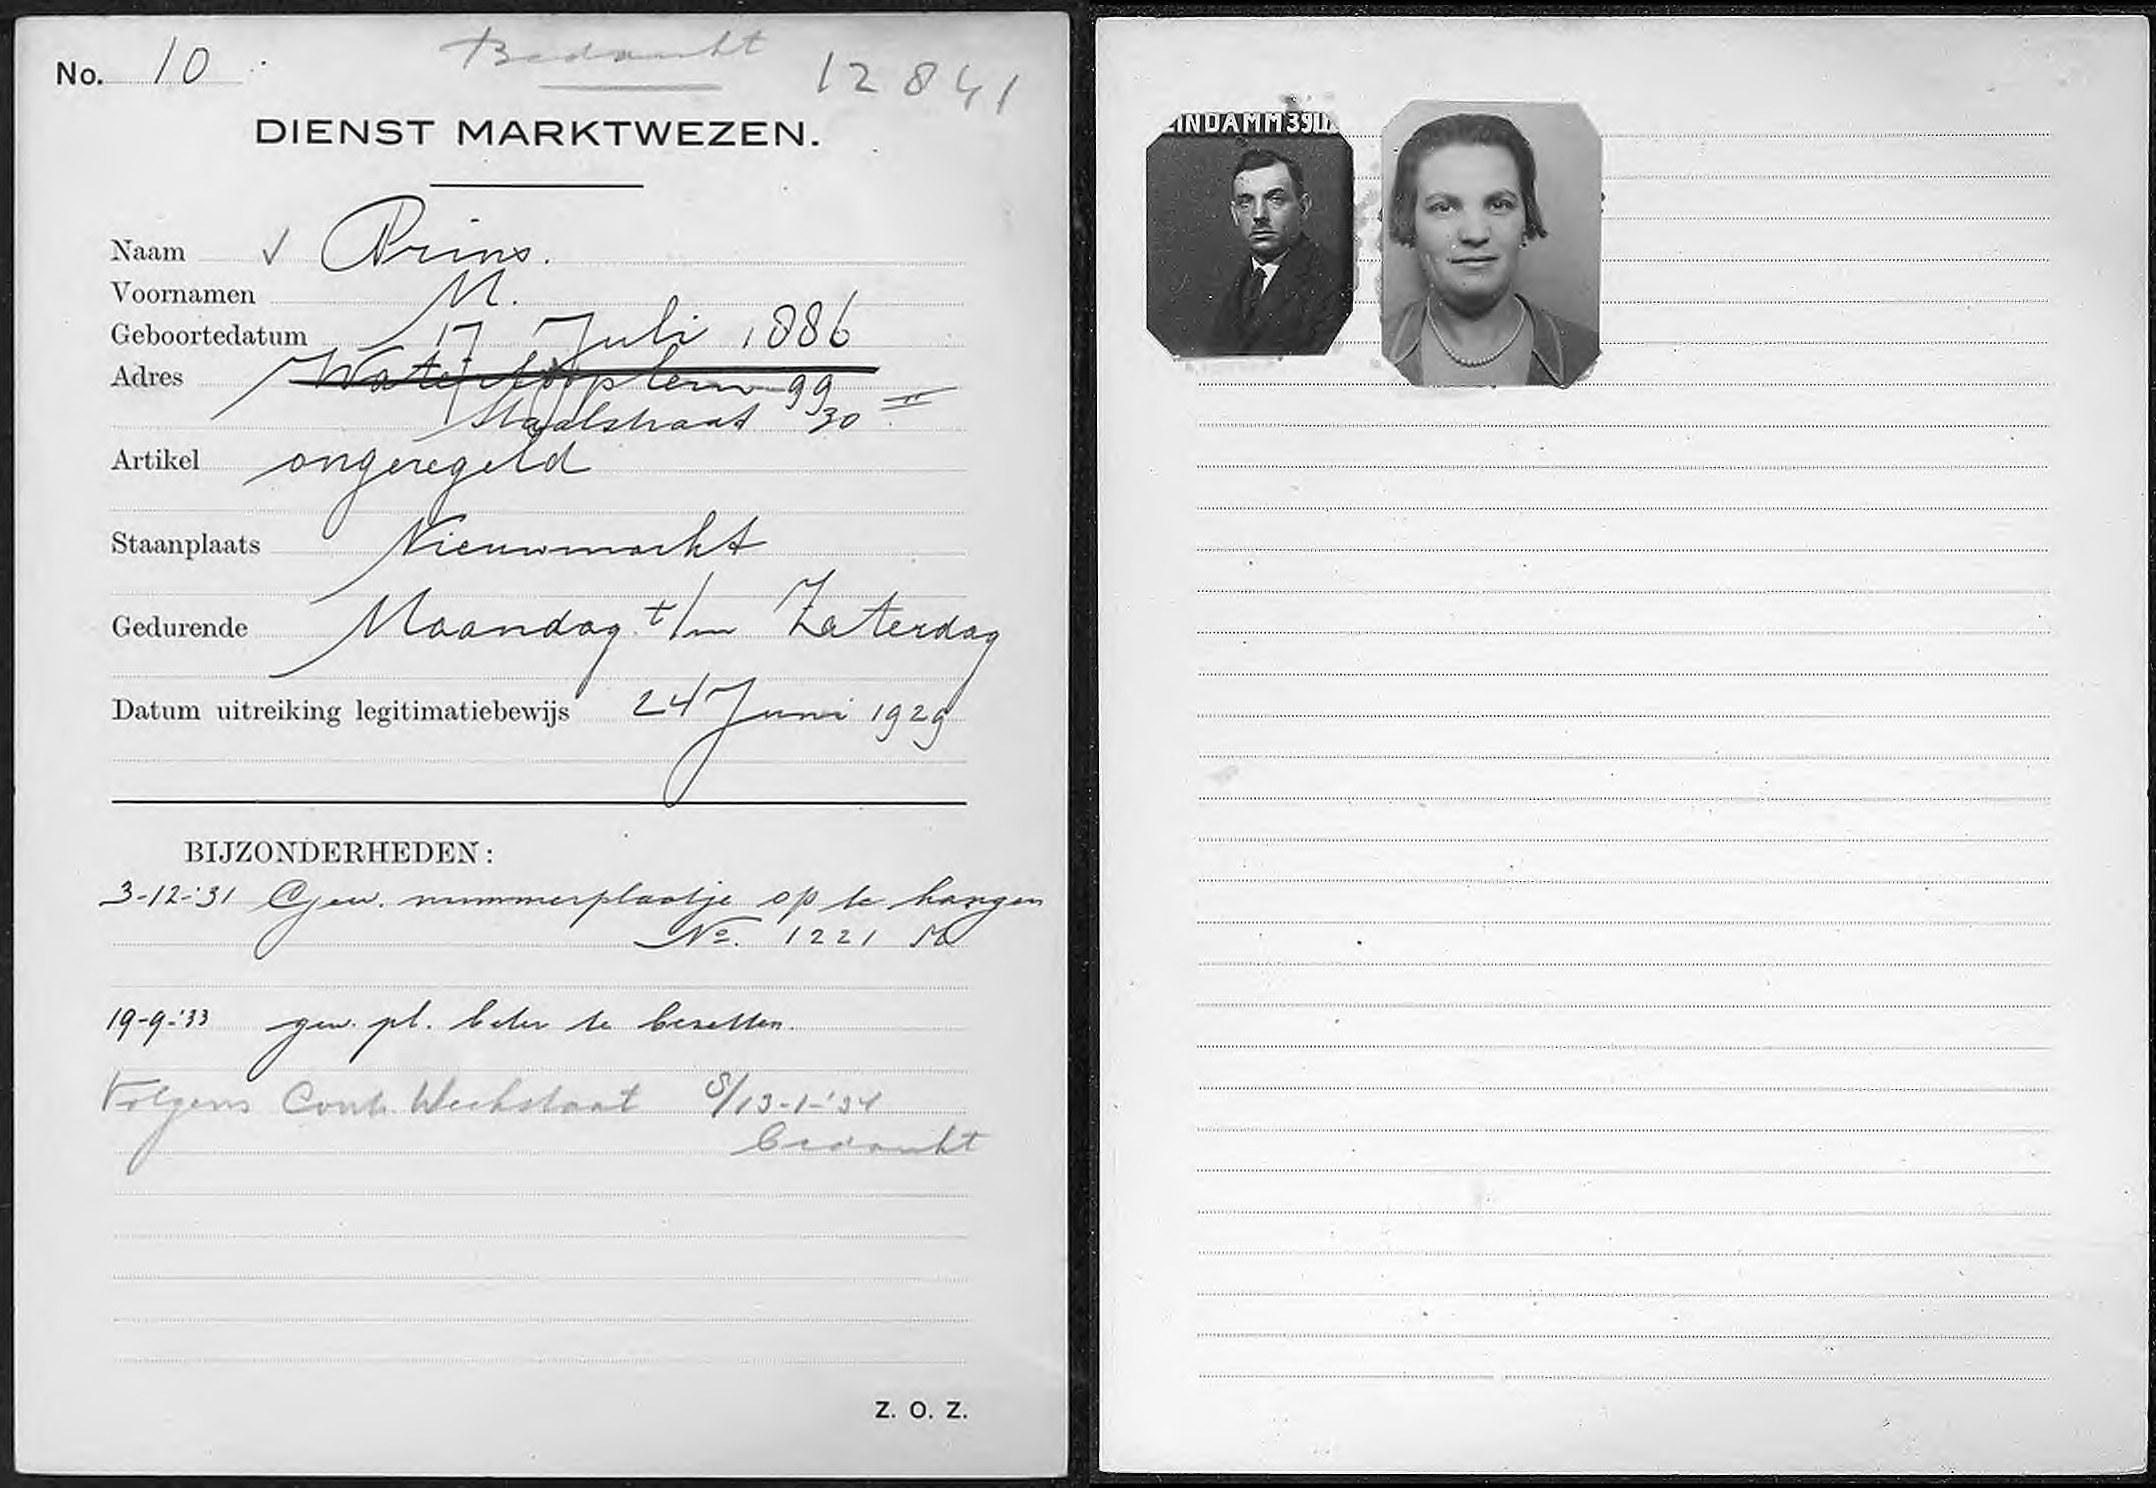 No. 10 Bedankt 12841
DIENST MARKTWEZEN.
Naam √ Prins.
Voornamen M.
Geboortedatum 17 Juli 1886
Adres Waterlooplein 99
Staalstraat 30 II
Artikel ongeregeld
Staanplaats Nieuwmarkt
Gedurende Maandag t/m Zaterdag
Datum uitreiking legitimatiebewijs 24 Juni 1929
BIJZONDERHEDEN:
3-12-'31 Gew. nummerplaatje op te hangen
No. 1221 M
19-9-'33 gew. pl. beter te bezetten.
Volgens Contr. Weekstaat 8/13-1-'34
bedankt
Z. O. Z.
INDAMM 391